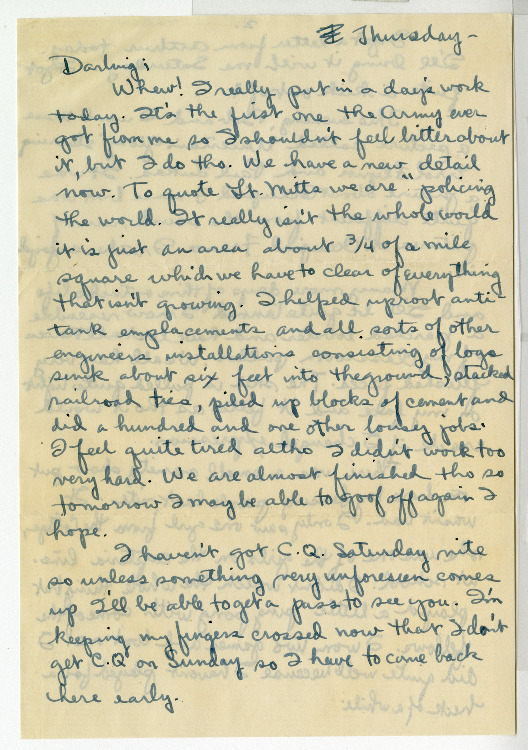 Thursday-
Darling;
Whew! I really put in a day's work
today. It's the first one the Army ever
got from me so I shouldn't feel bitter about
it, but I do tho. We have a new detail
now. To quote Lt. Mitts we are "policing
the world. It really isn't the whole world
it is just an area about 3/4 of a mile
square which we have to clear of everything
that isn't growing. I helped uproot anti-
tank emplacements and all sorts of other
engineers installations consisting of logs
sunk about six feet into the ground, stacked
railroad ties, piled up blocks of cement and
did a hundred and one other lousey jobs.
I feel quite tired altho I didn't work too
very hard. We are almost finished tho so
tomorrow I may be able to goof off again I
hope.
I haven't got C.Q. Saturday nite
so unless something very unforeseen comes
up I'll be able to get a pass to see you. I'm
keeping my fingers crossed now that I don't
get C.Q on Sunday so I have to come back
here early.